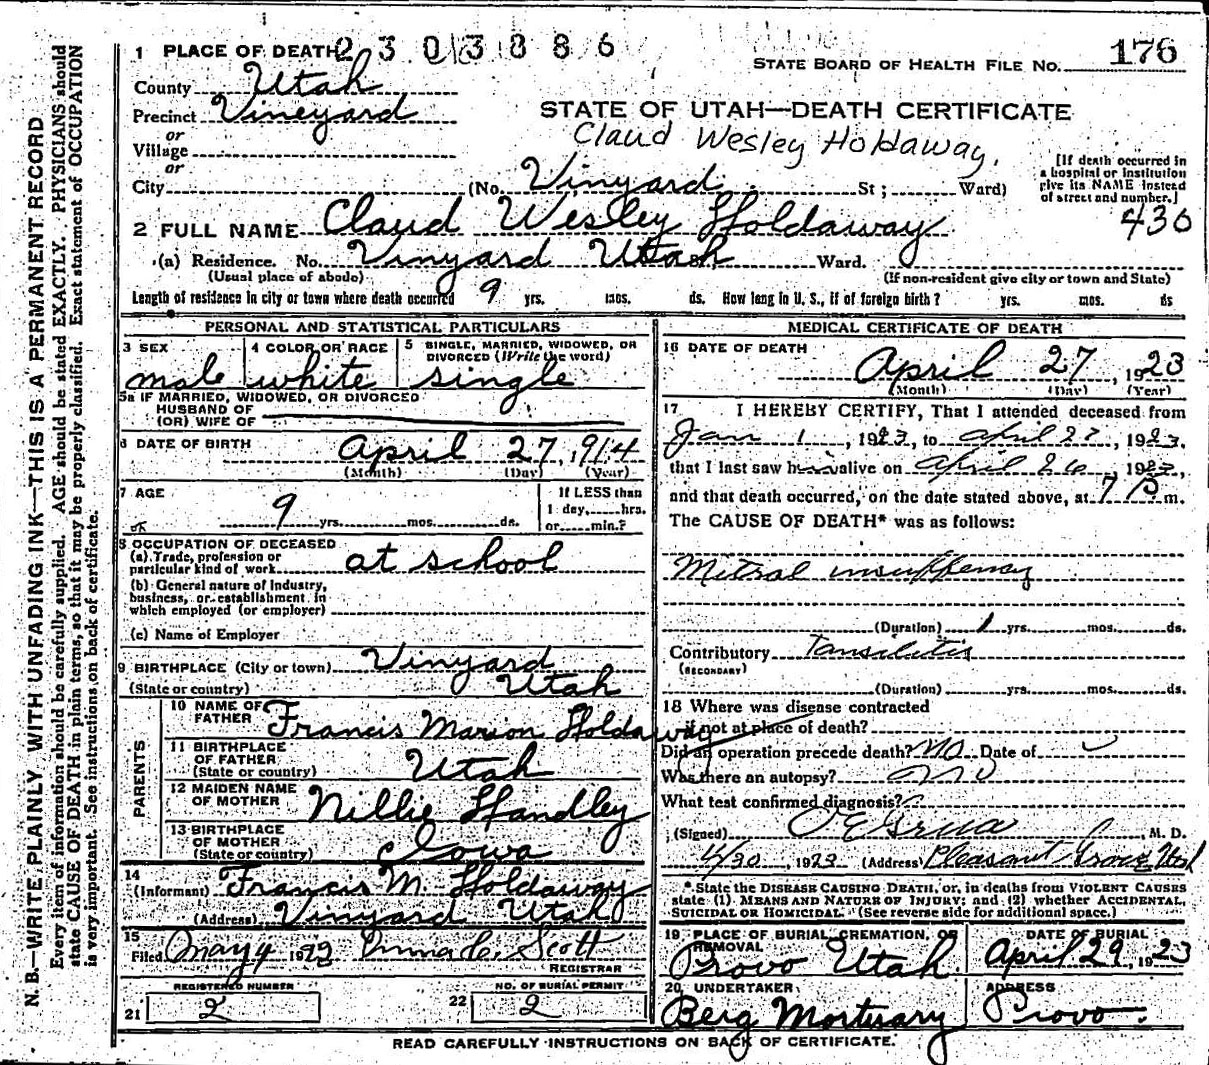 1 PLACE OF DEATH 2303886
STATE BOARD OF HEALTH FILE No. 176
County Utah
Precinct Vineyard
STATE OF UTAH—DEATH CERTIFICATE
or
Village
Claud Wesley Holdaway.
or
City (No. Vinyard St; Ward)
[If death occurred in a hospital or institution give its NAME instead of street and number.]
430
2 FULL NAME Claud Wesley Holdaway
(a) Residence. No. Vinyard Utah St. Ward.
(Usual place of abode) (If non-resident give city or town and State)
Length of residence in city or town where death occurred 9 yrs. mos. ds. How long in U. S., if of foreign birth? yrs. mos. ds
PERSONAL AND STATISTICAL PARTICULARS
3 SEX male
4 COLOR OR RACE white
5 SINGLE, MARRIED, WIDOWED, OR DIVORCED (Write the word) single
5a IF MARRIED, WIDOWED, OR DIVORCED
HUSBAND OF
(OR) WIFE OF
6 DATE OF BIRTH April 27, 1914
(Month) (Day) (Year)
7 AGE 9 yrs. mos. ds.
If LESS than 1 day, hrs. or min.?
8 OCCUPATION OF DECEASED
(a) Trade, profession or particular kind of work at school
(b) General nature of Industry, business, or establishment in which employed (or employer)
(c) Name of Employer
9 BIRTHPLACE (City or town) Vinyard
(State or country) Utah
PARENTS
10 NAME OF FATHER Francis Marion Holdaway
11 BIRTHPLACE OF FATHER (State or country) Utah
12 MAIDEN NAME OF MOTHER Nillie Handley
13 BIRTHPLACE OF MOTHER (State or country) Iowa
14 (Informant) Francis M. Holdaway
(Address) Vinyard Utah
15 Filed May 4 1923 Scott
REGISTRAR
REGISTERED NUMBER
21 2
NO. OF BURIAL PERMIT
22 2
MEDICAL CERTIFICATE OF DEATH
16 DATE OF DEATH
April 27, 1923
(Month) (Day) (Year)
17 I HEREBY CERTIFY, That I attended deceased from
Jan 1, 1923, to April 27, 1923,
that I last saw him alive on April 26, 1923,
and that death occurred, on the date stated above, at 7 P m.
The CAUSE OF DEATH* was as follows:
Mitral insuffency
(Duration) 1 yrs. mos. ds.
Contributory Tonsilitis
(SECONDARY)
(Duration) yrs. mos. ds.
18 Where was disease contracted
if not at place of death?
Did an operation precede death? no Date of
Was there an autopsy? no
What test confirmed diagnosis?
(Signed) O E Grua, M. D.
4/30 1923 (Address) Pleasant Grove Utah
*State the DISEASE CAUSING DEATH, or, in deaths from VIOLENT CAUSES
state (1) MEANS AND NATURE OF INJURY; and (2) whether ACCIDENTAL,
SUICIDAL OR HOMICIDAL. (See reverse side for additional space.)
19 PLACE OF BURIAL, CREMATION, OR REMOVAL
Provo Utah.
DATE OF BURIAL
April 29, 1923
20 UNDERTAKER
Berg Mortuary
ADDRESS
Provo.
READ CAREFULLY INSTRUCTIONS ON BACK OF CERTIFICATE.
N. B.—WRITE PLAINLY WITH UNFADING INK—THIS IS A PERMANENT RECORD
Every item of information should be carefully supplied. AGE should be stated EXACTLY. PHYSICIANS should
state CAUSE OF DEATH in plain terms, so that it may be properly classified. Exact statement of OCCUPATION
is very important. See instructions on back of certificate.